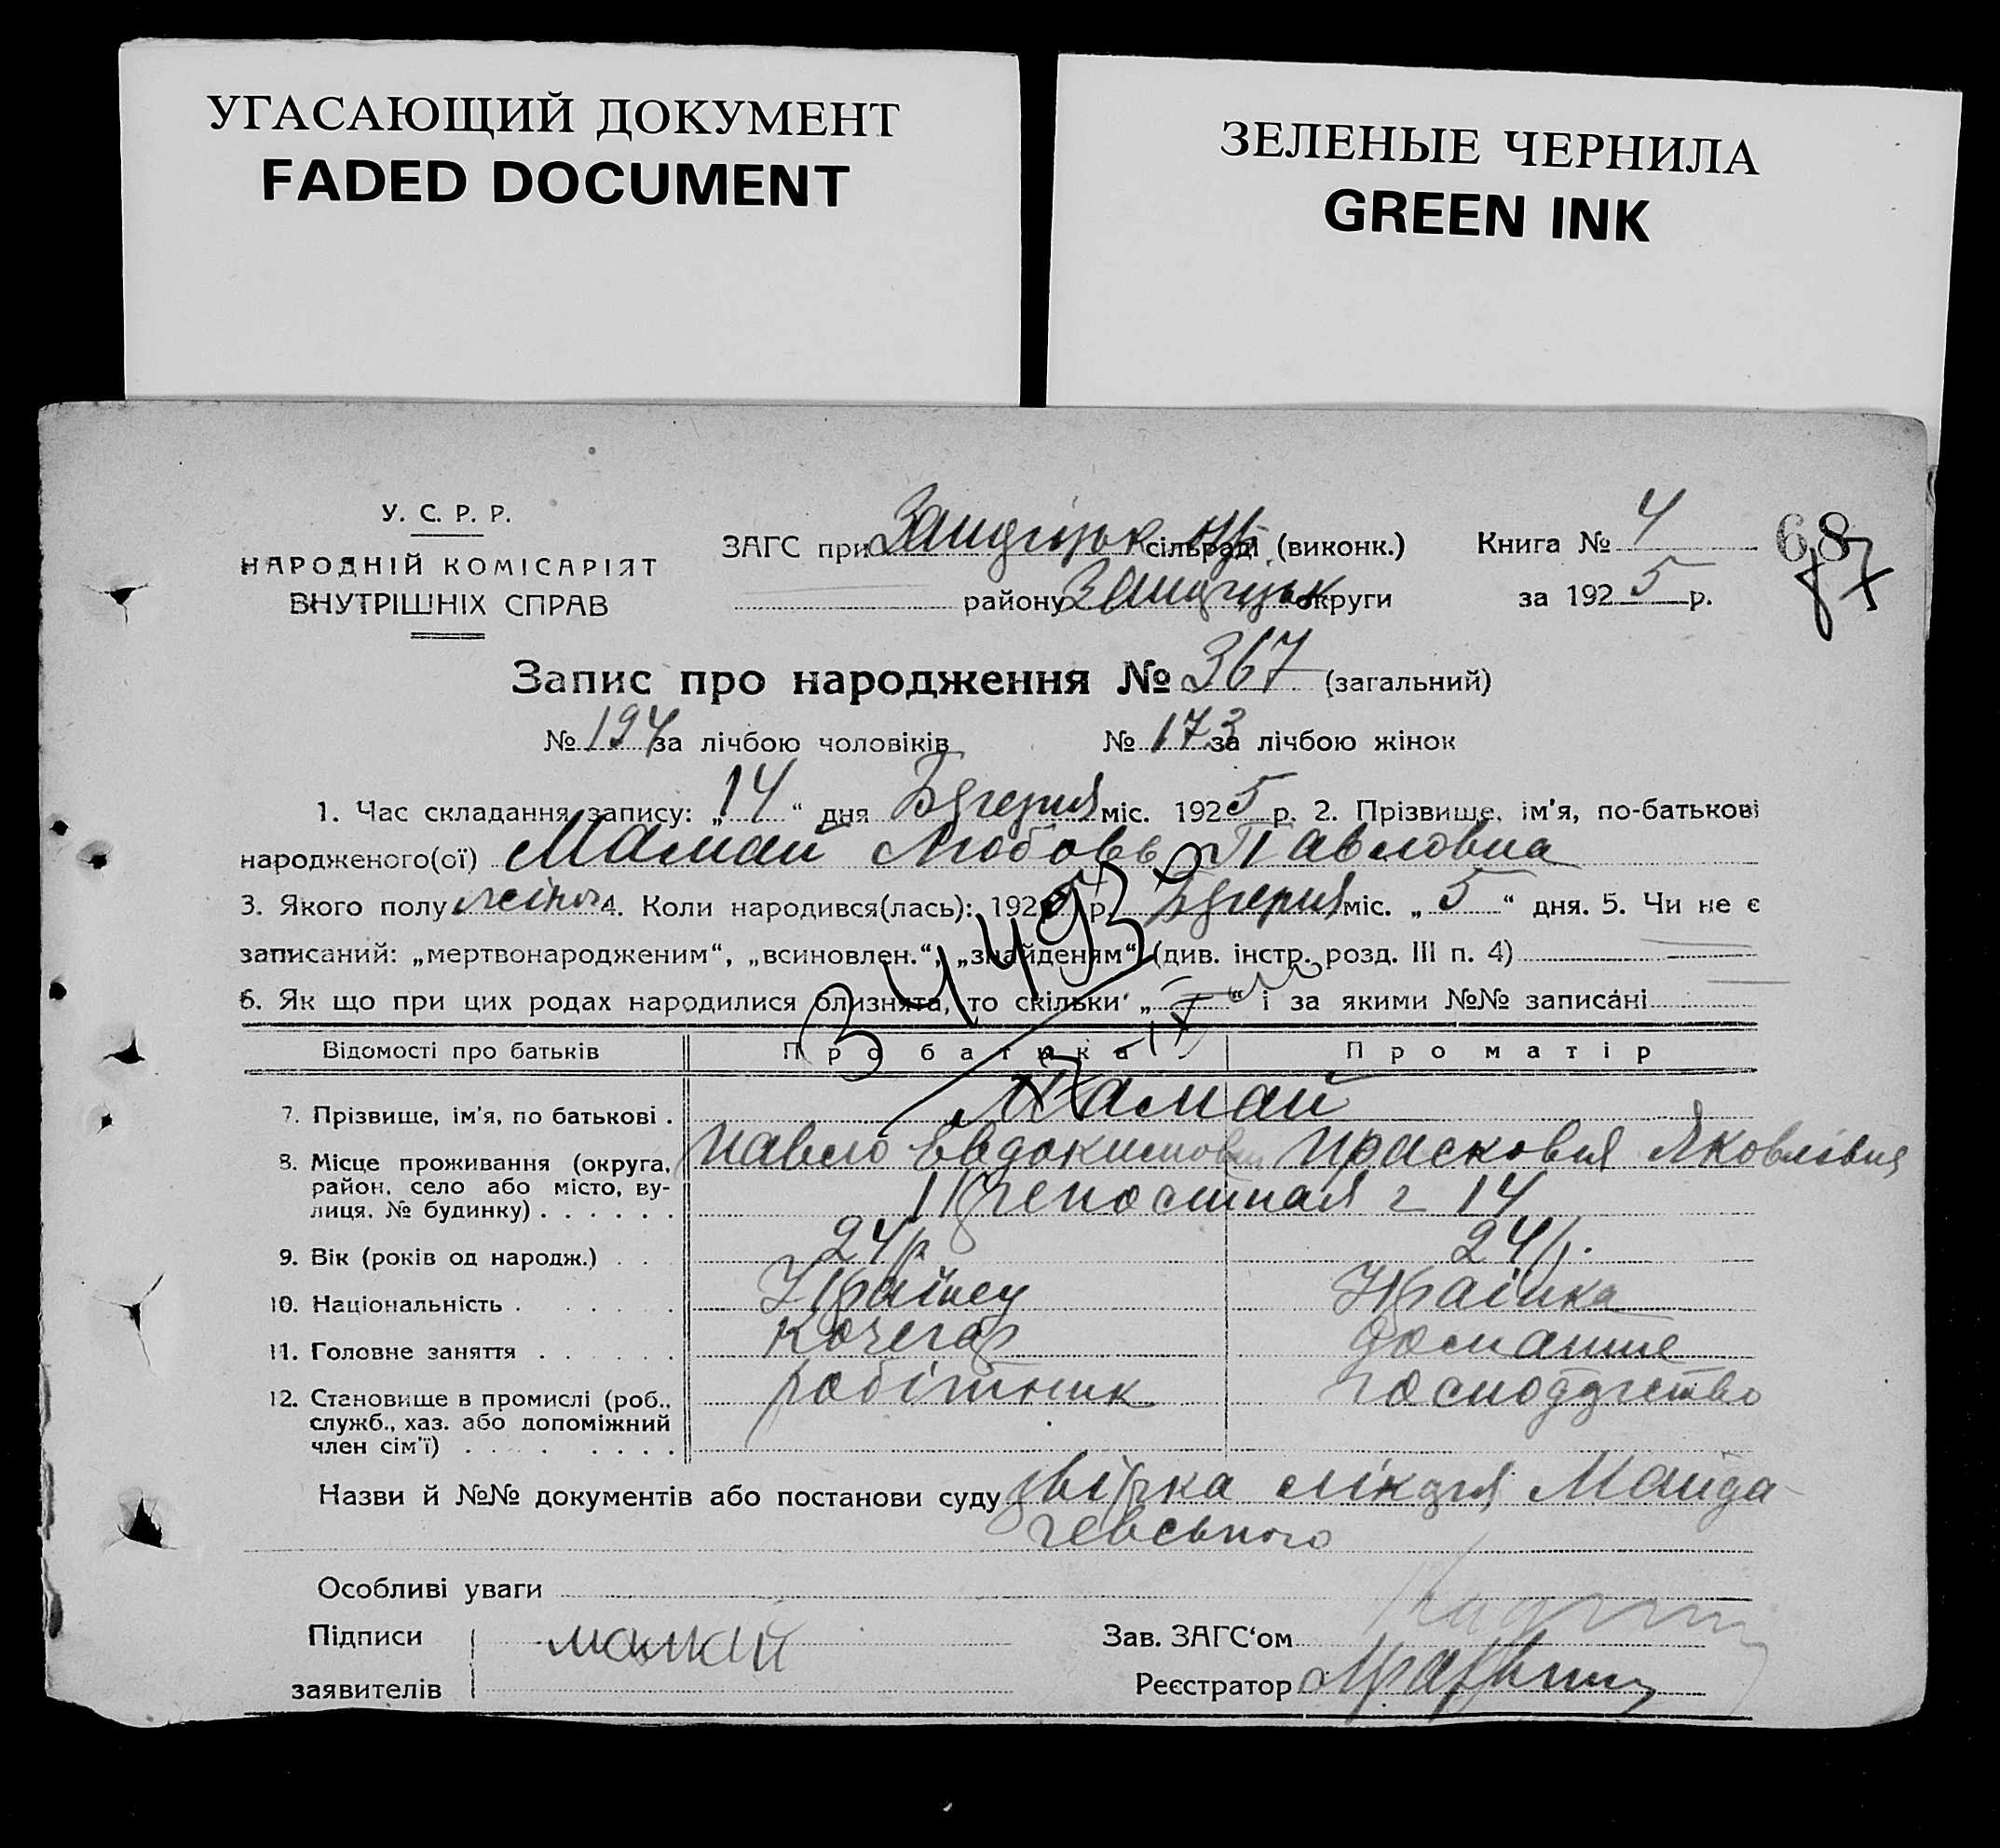 УГАСАЮЩИЙ ДОКУМЕНТ
FADED DOCUMENT
ЗЕЛЕНЫЕ ЧЕРНИЛА
GREEN INK
У. С. Р. Р.
НАРОДНІЙ КОМІСАРІЯТ
ВНУТРІШНІХ СПРАВ
ЗАГС при сільраді (виконк.)
району округи
Книга № 4
за 1925 р.
68
Запис про народження № 367 (загальний)
№ 194 за лічбою чоловіків № 173 за лічбою жінок
1. Час складання запису: „14“ дня міс. 1925 р. 2. Прізвище, ім'я, по-батькові
народженого(ої) Мамай Любовь Павловна
3. Якого полу жіноч 4. Коли народився(лась): 1925 р. міс. „5“ дня. 5. Чи не є
записаний: „мертвонародженим“, „всиновлен.“, „знайденям“ (див. інстр. розд. III п. 4)
6. Як що при цих родах народилися близнята, то скільки „ “ і за якими №№ записані
3 4493
Відомості про батьків Про батька Про матір
7. Прізвище, ім'я, по батькові . Мамай
Павло Евдокимович Прасковия Яковлівна
8. Місце проживання (округа,
район, село або місто, ву-
лиця, № будинку) . . . . . . 14
9. Вік (років од народж.) . . 24 р 24 р.
10. Національність . . . . . Украінец Украінка
11. Головне заняття . . . . . . Кочегар домашне
12. Становище в промислі (роб.,
служб., хаз. або допоміжний
член сім'ї) . . . . . . . . робітник господарство
Назви й №№ документів або постанови суду довірка лікаря Майда-
чевського
Особливі уваги
Підписи
заявителів мамай
Зав. ЗАГС‘ом
Реєстратор